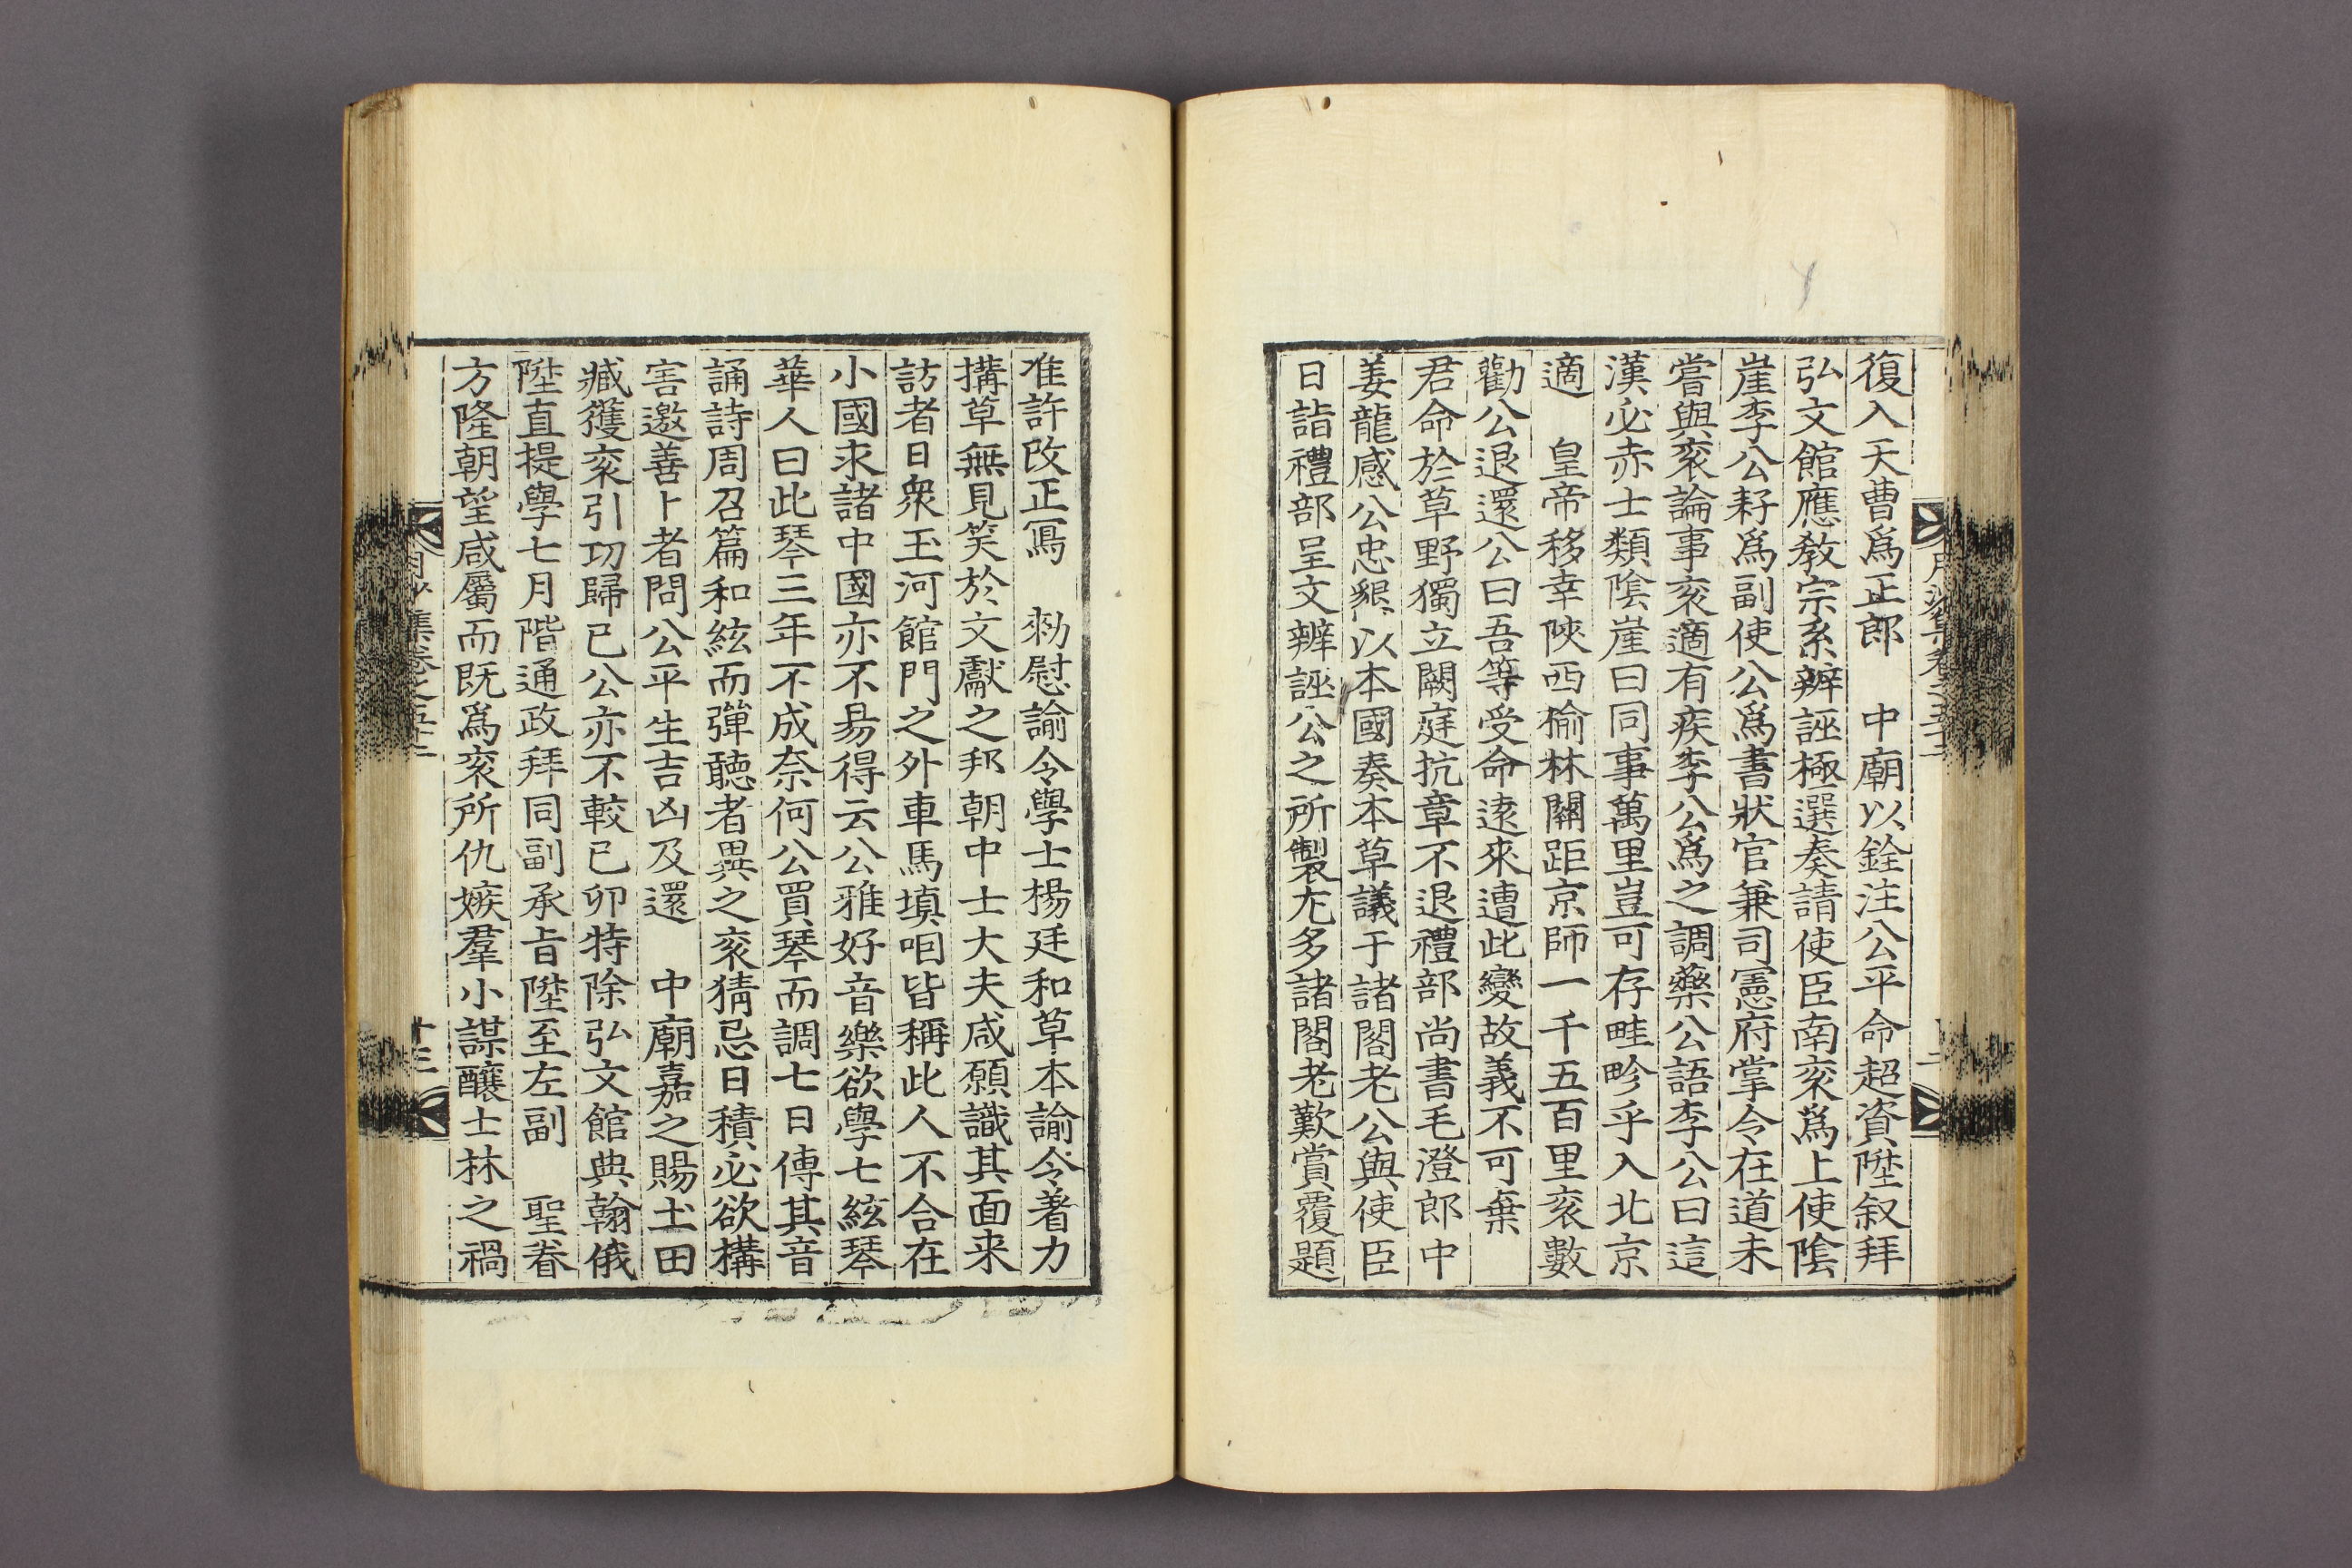 復入天曹爲正郎　中廟以銓注公平命超資陞叙拜
弘文館應敎宗系辨誣極選奏請使臣南衮爲上使陰
崖李公耔爲副使公爲書狀官兼司憲府掌令在道未
嘗與衮論事衮適有疾李公爲之調藥公語李公曰這
漢必赤士類陰崖曰同事萬里豈可存畦畛乎入北京
適　皇帝移幸陝西楡林關距京師一千五百里衮數
勸公退還公曰吾等受命遠來遭此變故義不可棄
君命於草野獨立闕庭抗章不退禮部尚書毛澄郎中
姜龍感公忠懇以本國奏本草議于諸閣老公與使臣
日詣禮部呈文辨誣公之所製尤多諸閣老歎賞覆題
准許改正寫　勑慰諭令學士楊廷和草本諭令著力
搆草無見笑於文獻之邦朝中士大夫咸願識其面来
訪者日衆玉河館門之外車馬塡咽皆稱此人不合在
小國求諸中國亦不易得云公雅好音樂欲學七絃琴
華人曰此琴三年不成奈何公買琴而調七日傳其音
誦詩周召篇和絃而彈聽者異之衮猜忌日積必欲構
害邀善卜者問公平生吉凶及還　中廟嘉之賜土田
臧獲衮引功歸已公亦不較已卯特除弘文館典翰俄
陞直提學七月階通政拜同副承旨陞至左副　聖眷
方隆朝望咸屬而既爲衮所仇嫉羣小謀釀士林之禍
月沙集卷之五十二
十三